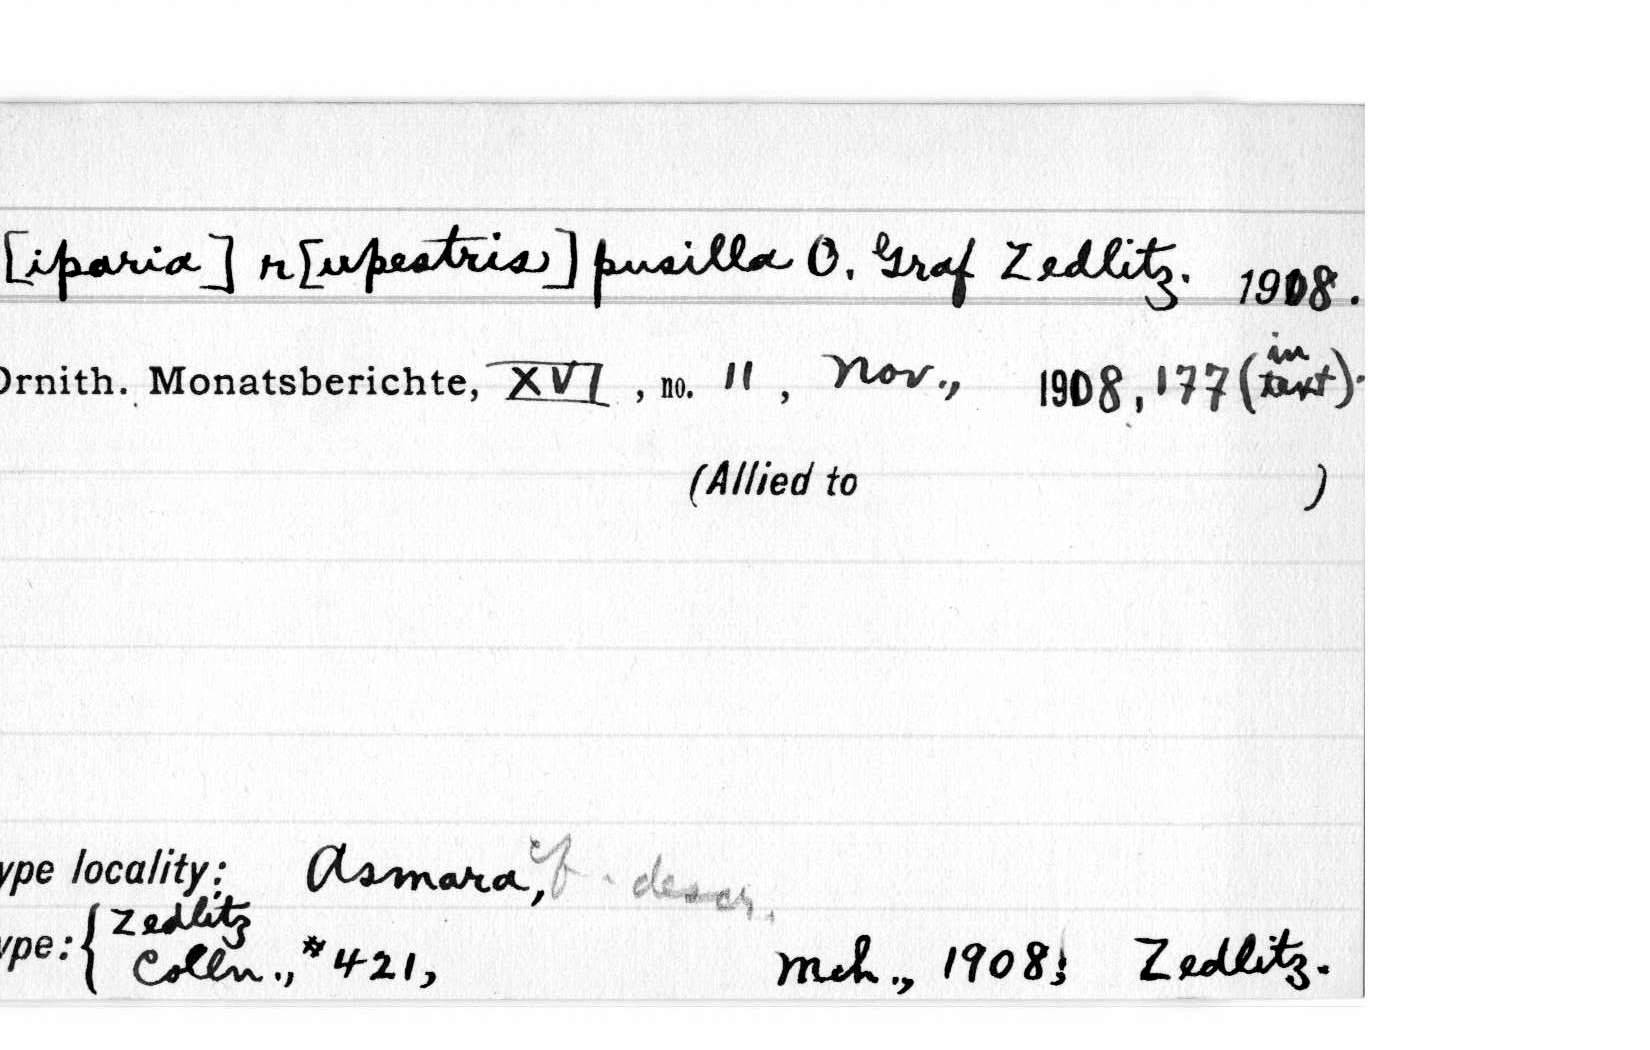 [iparia] r[upestris] pusilla O. Graf Zedlitz. 1908.
Ornith. Monatsberichte, XVI, no. 11, Nov., 1908, 177 (in text).
(Allied to )
ype locality: Asmara, cf. descr.
ype: { Zedlitz
Colln., #421, Mch., 1908; Zedlitz.